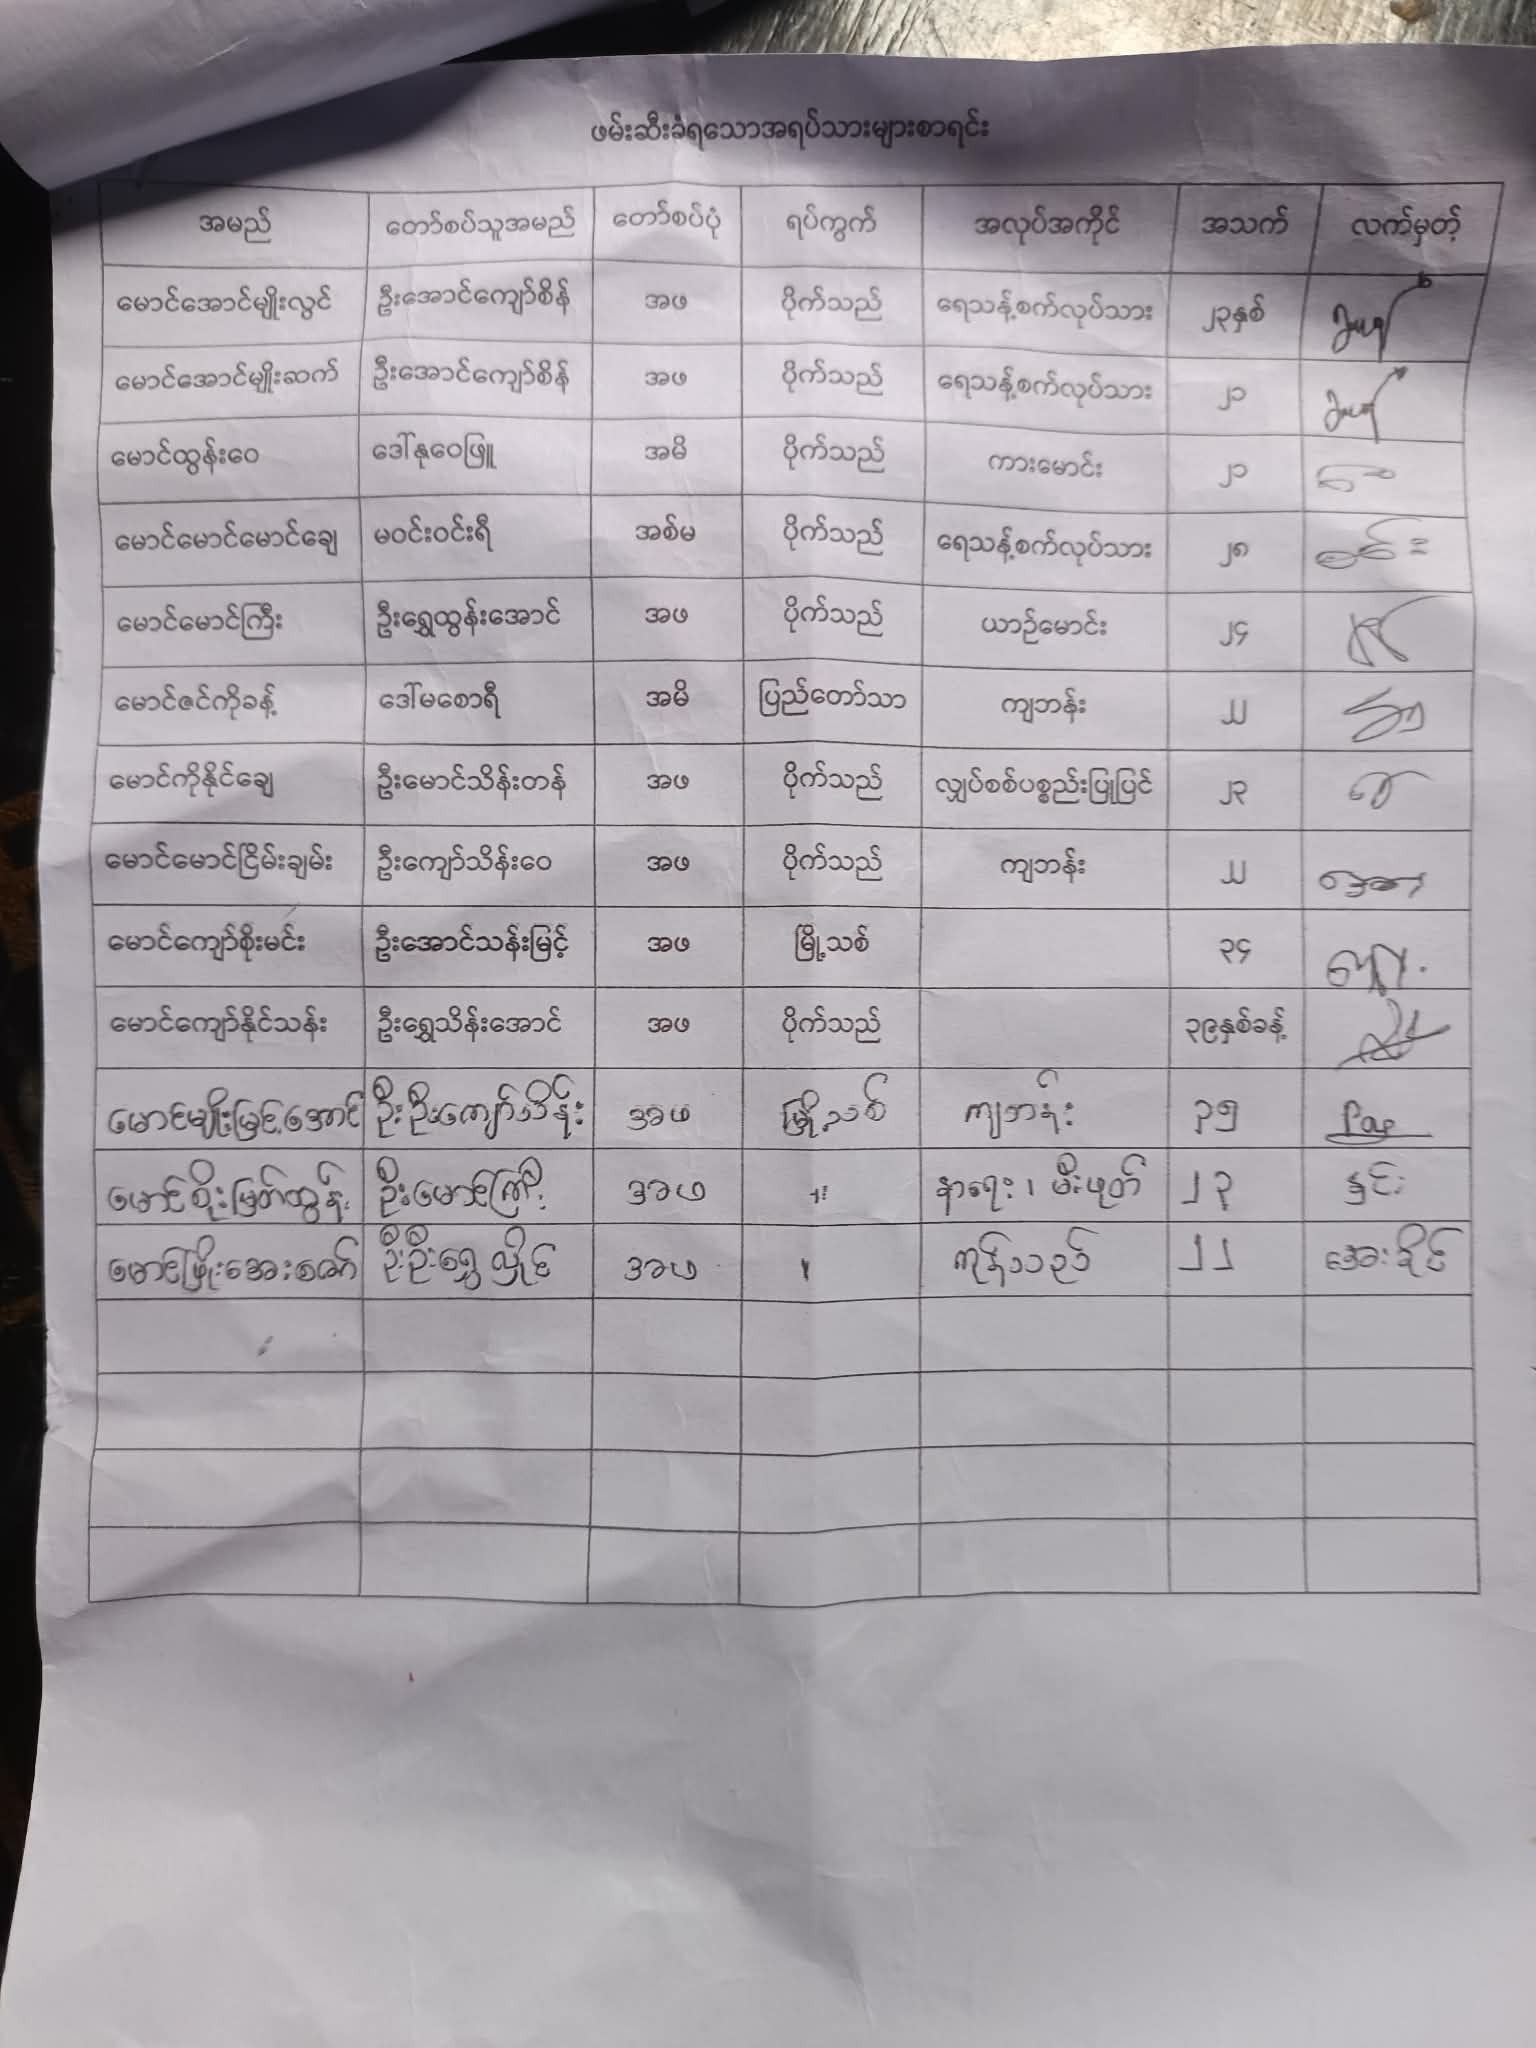 ဖမ်းဆီးခံရသောအရပ်သားများစာရင်း
အမည် တော်စပ်သူအမည် တော်စပ်ပုံ ရပ်ကွက် အလုပ်အကိုင် အသက် လက်မှတ်
မောင်အောင်မျိုးလွင် ဦးအောင်ကျော်စိန် အဖ ပိုက်သည် ရေသန့်စက်လုပ်သား ၂၃နှစ်
မောင်အောင်မျိုးဆက် ဦးအောင်ကျော်စိန် အဖ ပိုက်သည် ရေသန့်စက်လုပ်သား ၂၁
မောင်ထွန်းဝေ ဒေါ်နုဝေဖြူ အမိ ပိုက်သည် ကားမောင်း ၂၁
မောင်မောင်မောင်ချေ မဝင်းဝင်းရီ အစ်မ ပိုက်သည် ရေသန့်စက်လုပ်သား ၂၈
မောင်မောင်ကြီး ဦးရွှေထွန်းအောင် အဖ ပိုက်သည် ယာဉ်မောင်း ၂၄
မောင်ဇင်ကိုခန့် ဒေါ်မစောရီ အမိ ပြည်တော်သာ ကျဘန်း ၂၂
မောင်ကိုနိုင်ချေ ဦးမောင်သိန်းတန် အဖ ပိုက်သည် လျှပ်စစ်ပစ္စည်းပြုပြင် ၂၃
မောင်မောင်ငြိမ်းချမ်း ဦးကျော်သိန်းဝေ အဖ ပိုက်သည် ကျဘန်း ၂၂
မောင်ကျော်စိုးမင်း ဦးအောင်သန်းမြင့် အဖ မြို့သစ် ၃၄
မောင်ကျော်နိုင်သန်း ဦးရွှေသိန်းအောင် အဖ ပိုက်သည် ၃၉နှစ်ခန့်
မောင်မျိုးမြင့်အောင် ဦးဦးကျော်သိန်း အဖ မြို့သစ် ကျဘန်း ၃၅
မောင်စိုးမြတ်ထွန်း ဦးမောင်ကြီး အဖ 〃 နာရေး၊ မီးဖုတ် ၂၃ နှင်း
မောင်ဖြိုးအေးဇော် ဦးဦးရွှေလှိုင် အဖ 〃 ကုန်သည် ၂၂ အေးခိုင်